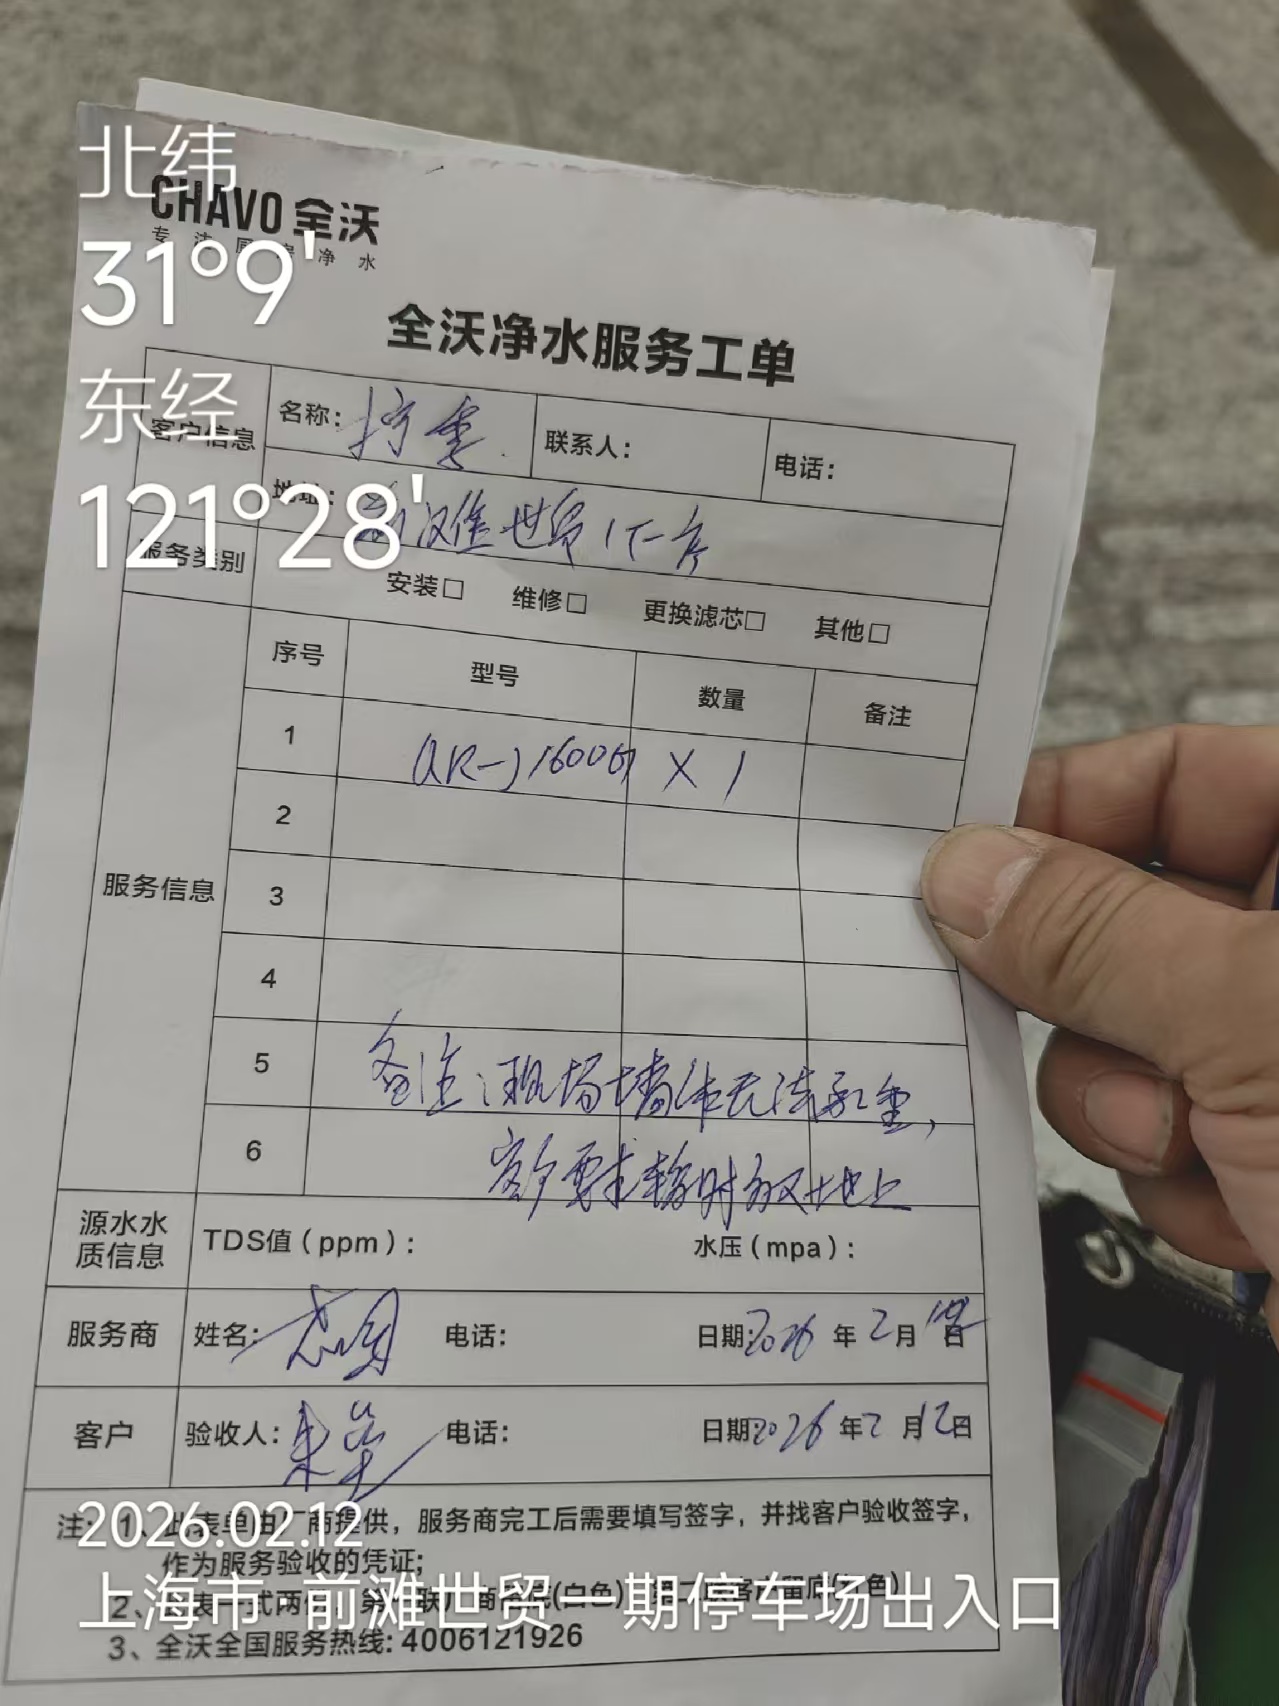 北纬
31°9'
东经
121°28'
CHAVO 全沃
专注厨房净水
全沃净水服务工单
客户信息
名称:
联系人:
电话:
地址: 前滩世贸1下一房
服务类别
安装□ 维修□ 更换滤芯□ 其他□
序号 型号 数量 备注
服务信息
1 UR-J1600G X 1
2
3
4
5 备注:现场墙体无法承重,
6 客户要求暂时放对地上
源水水质信息
TDS值(ppm): 水压(mpa):
服务商 姓名: 电话: 日期:2026年2月12日
客户 验收人: 电话: 日期2026年2月12日
注: 1、此表单由厂商提供,服务商完工后需要填写签字,并找客户验收签字,
作为服务验收的凭证;
2、
3、全沃全国服务热线: 4006121926
2026.02.12
上海市·前滩世贸一期停车场出入口